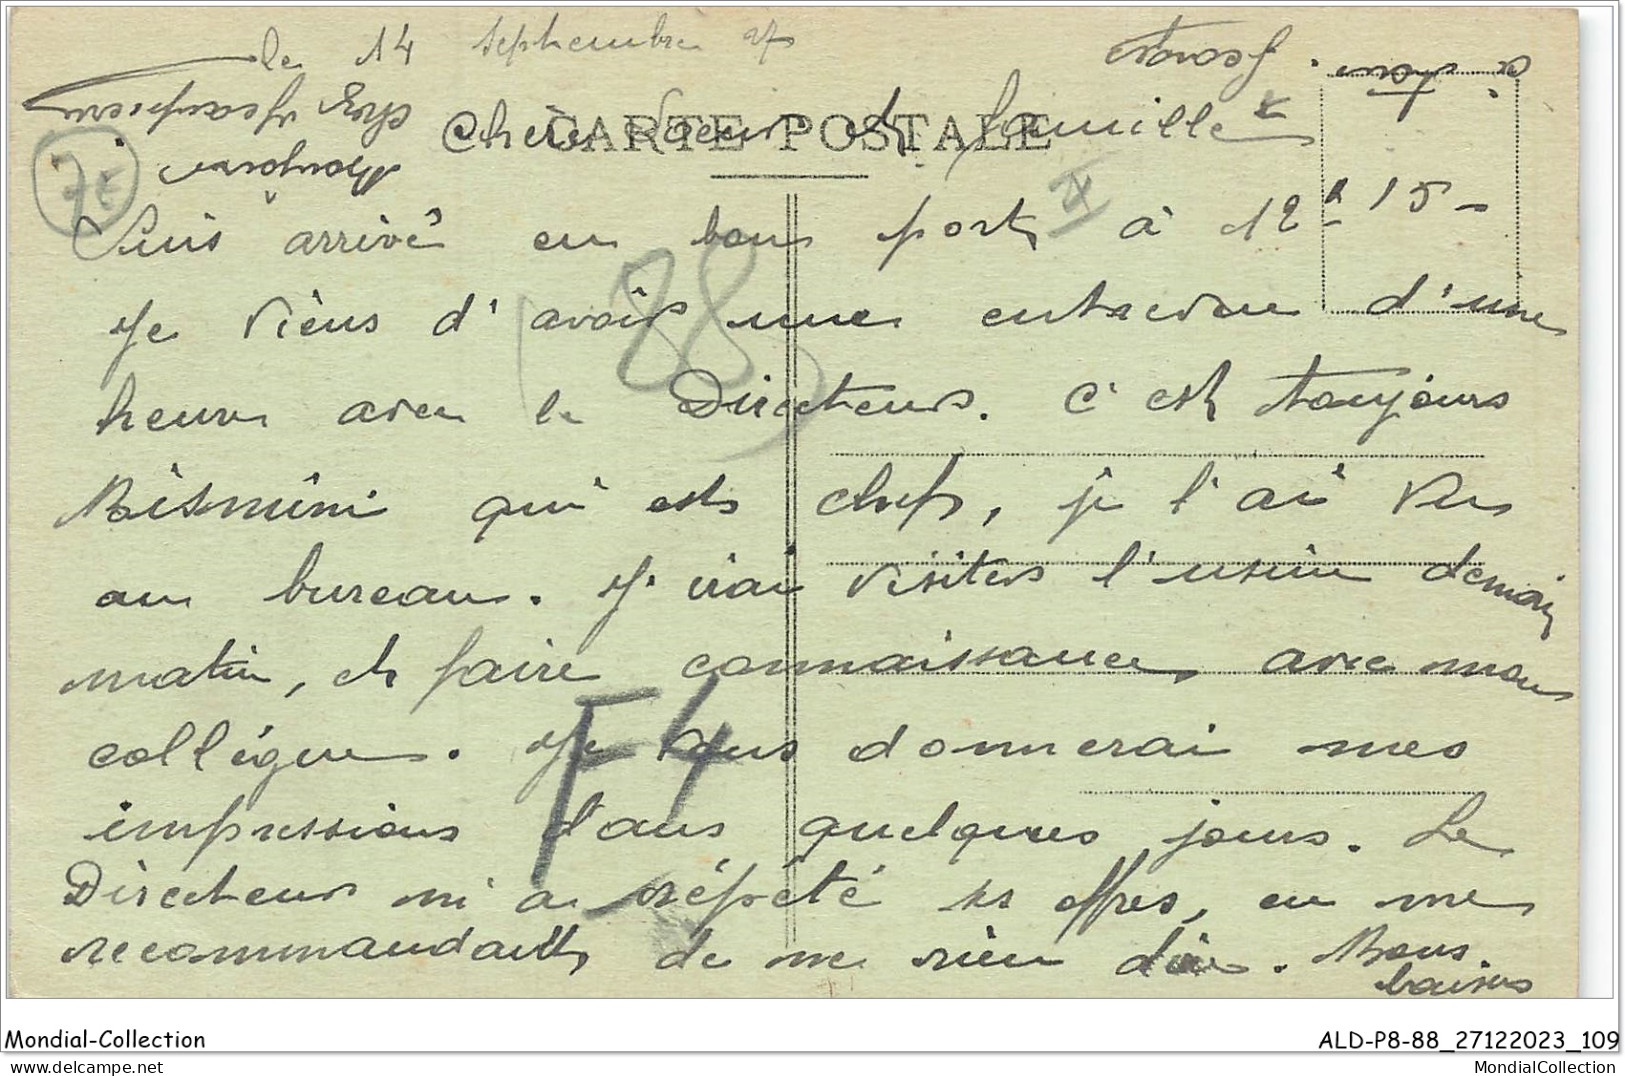 le 14 Septembre 27
CARTE POSTALE
Chère Soeur et famille
Suis arrivé en bon port à 12h 15 -
Je viens d'avoir une entrevue d'une
heure avec le Directeur. C'est toujours
qui est chef, je l'ai vu
au bureau. J'irai visiter l'usine demain
matin, et faire connaissance avec mon
collègue. Je vous donnerai mes
impressions dans quelques jours. Le
Directeur m'a répété ses offres, en me
recommandant de ne rien dire. Bons
baisers
à tous
Georges
chez
7€
88
F4
Mondial-Collection
ALD-P8-88_27122023_109
MondialCollection